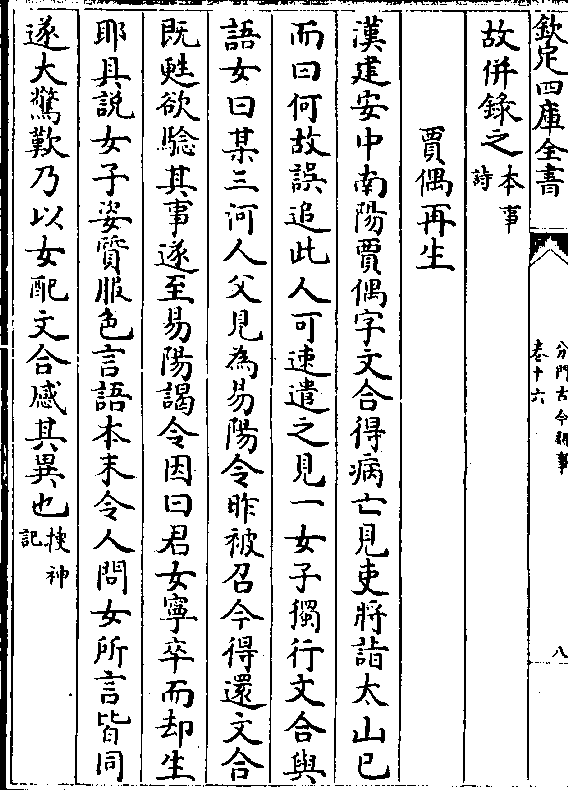 欽定四庫全書
分門古今類事
卷十六
八
故併録之本事詩
賈偶再生
漢建安中南陽賈偶字文合得病亡見吏將詣太山已
而曰何故誤追此人可速遣之見一女子獨行文合與
語女曰某三河人父見為易陽令昨被召今得還文合
既甦欲騐其事遂至易陽謁令因曰君女寧卒而却生
耶具説女子姿質服色言語本末令人問女所言皆同
遂大驚歎乃以女配文合感其異也搜神記